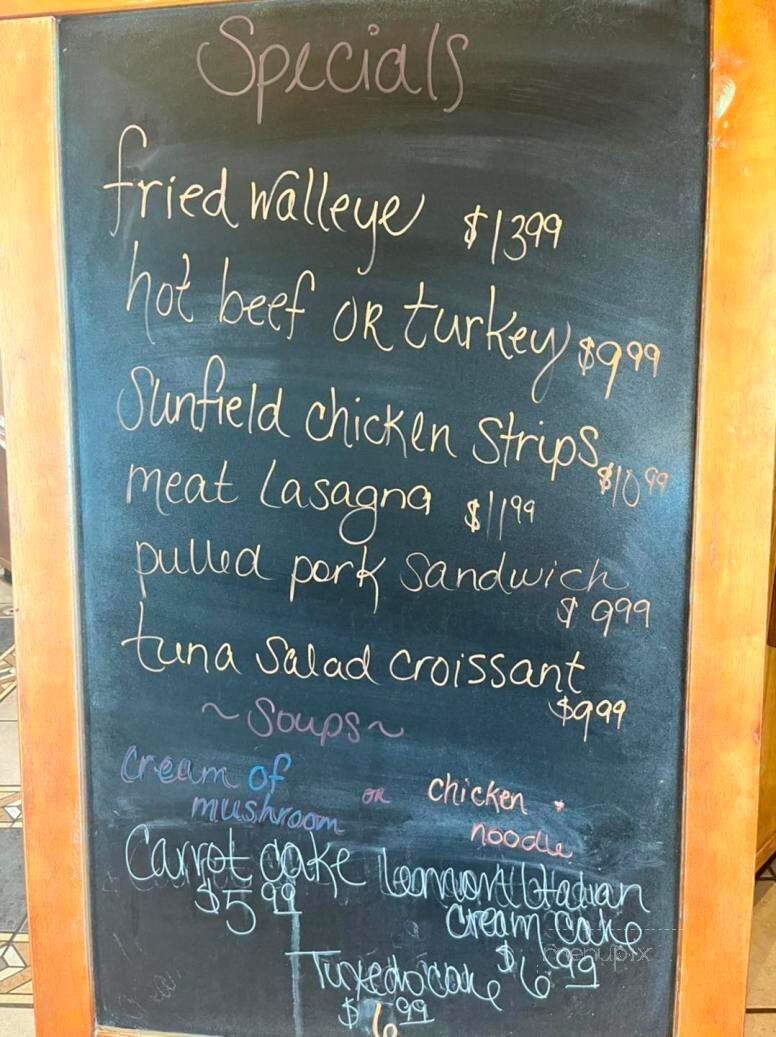 Specials
fried walleye $13.99
hot beef OR turkey $9.99
Sunfield chicken Strips $10.99
meat Lasagna $11.99
pulled pork Sandwich
$9.99
tuna Salad croissant
$9.99
~Soups~
cream of mushroom OR chicken noodle
Carrot cake
$5.99
cream cake
$6.99
Tuxedo cake
$6.99
menupix